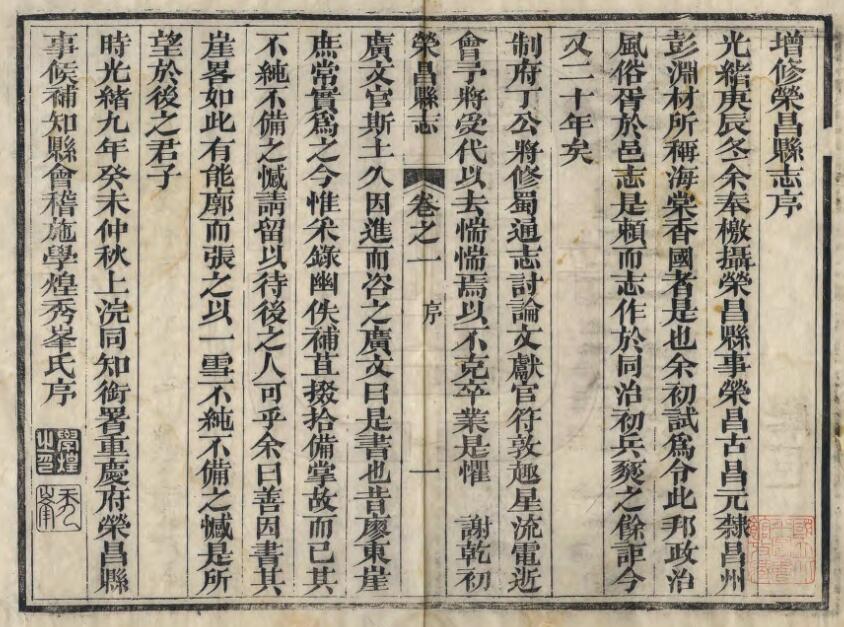 增修榮昌縣志序
光緒庚辰冬余奉檄攝榮昌縣事榮昌古昌元隸昌州
彭淵材所稱海棠香國者是也余初試爲令此邦政治
風俗胥於邑志是賴而志作於同治初兵燹之餘詎今
又二十年矣
制府丁公將修蜀通志討論文獻官符敦趣星流電逝
會予將受代以去惴惴焉以不克卒業是懼 謝乾初
榮昌縣志 卷之一 序 一
廣文官斯土久因進而咨之廣文曰是書也昔廖東崖
庶常實爲之今惟采錄幽佚補苴掇拾備掌故而已其
不純不備之憾請留以待後之人可乎余曰善因書其
崖畧如此有能廓而張之以一雪不純不備之憾是所
望於後之君子
時光緒九年癸未仲秋上浣同知銜署重慶府榮昌縣
事候補知縣會稽施學煌秀峯氏序
學煌之印
秀峯